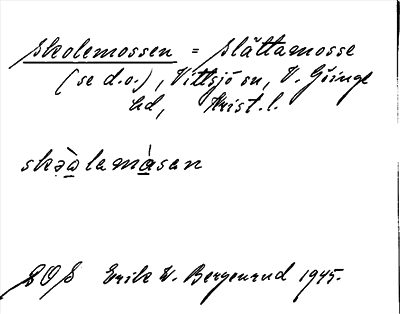 Skolemossen = Slättamosse
(se d.o.), Vittsjö sn, V. Göinge
hd, Krist. l.
skə̀ɑ̀lamàsan
SOS Erik W. Bergenrud 1945.